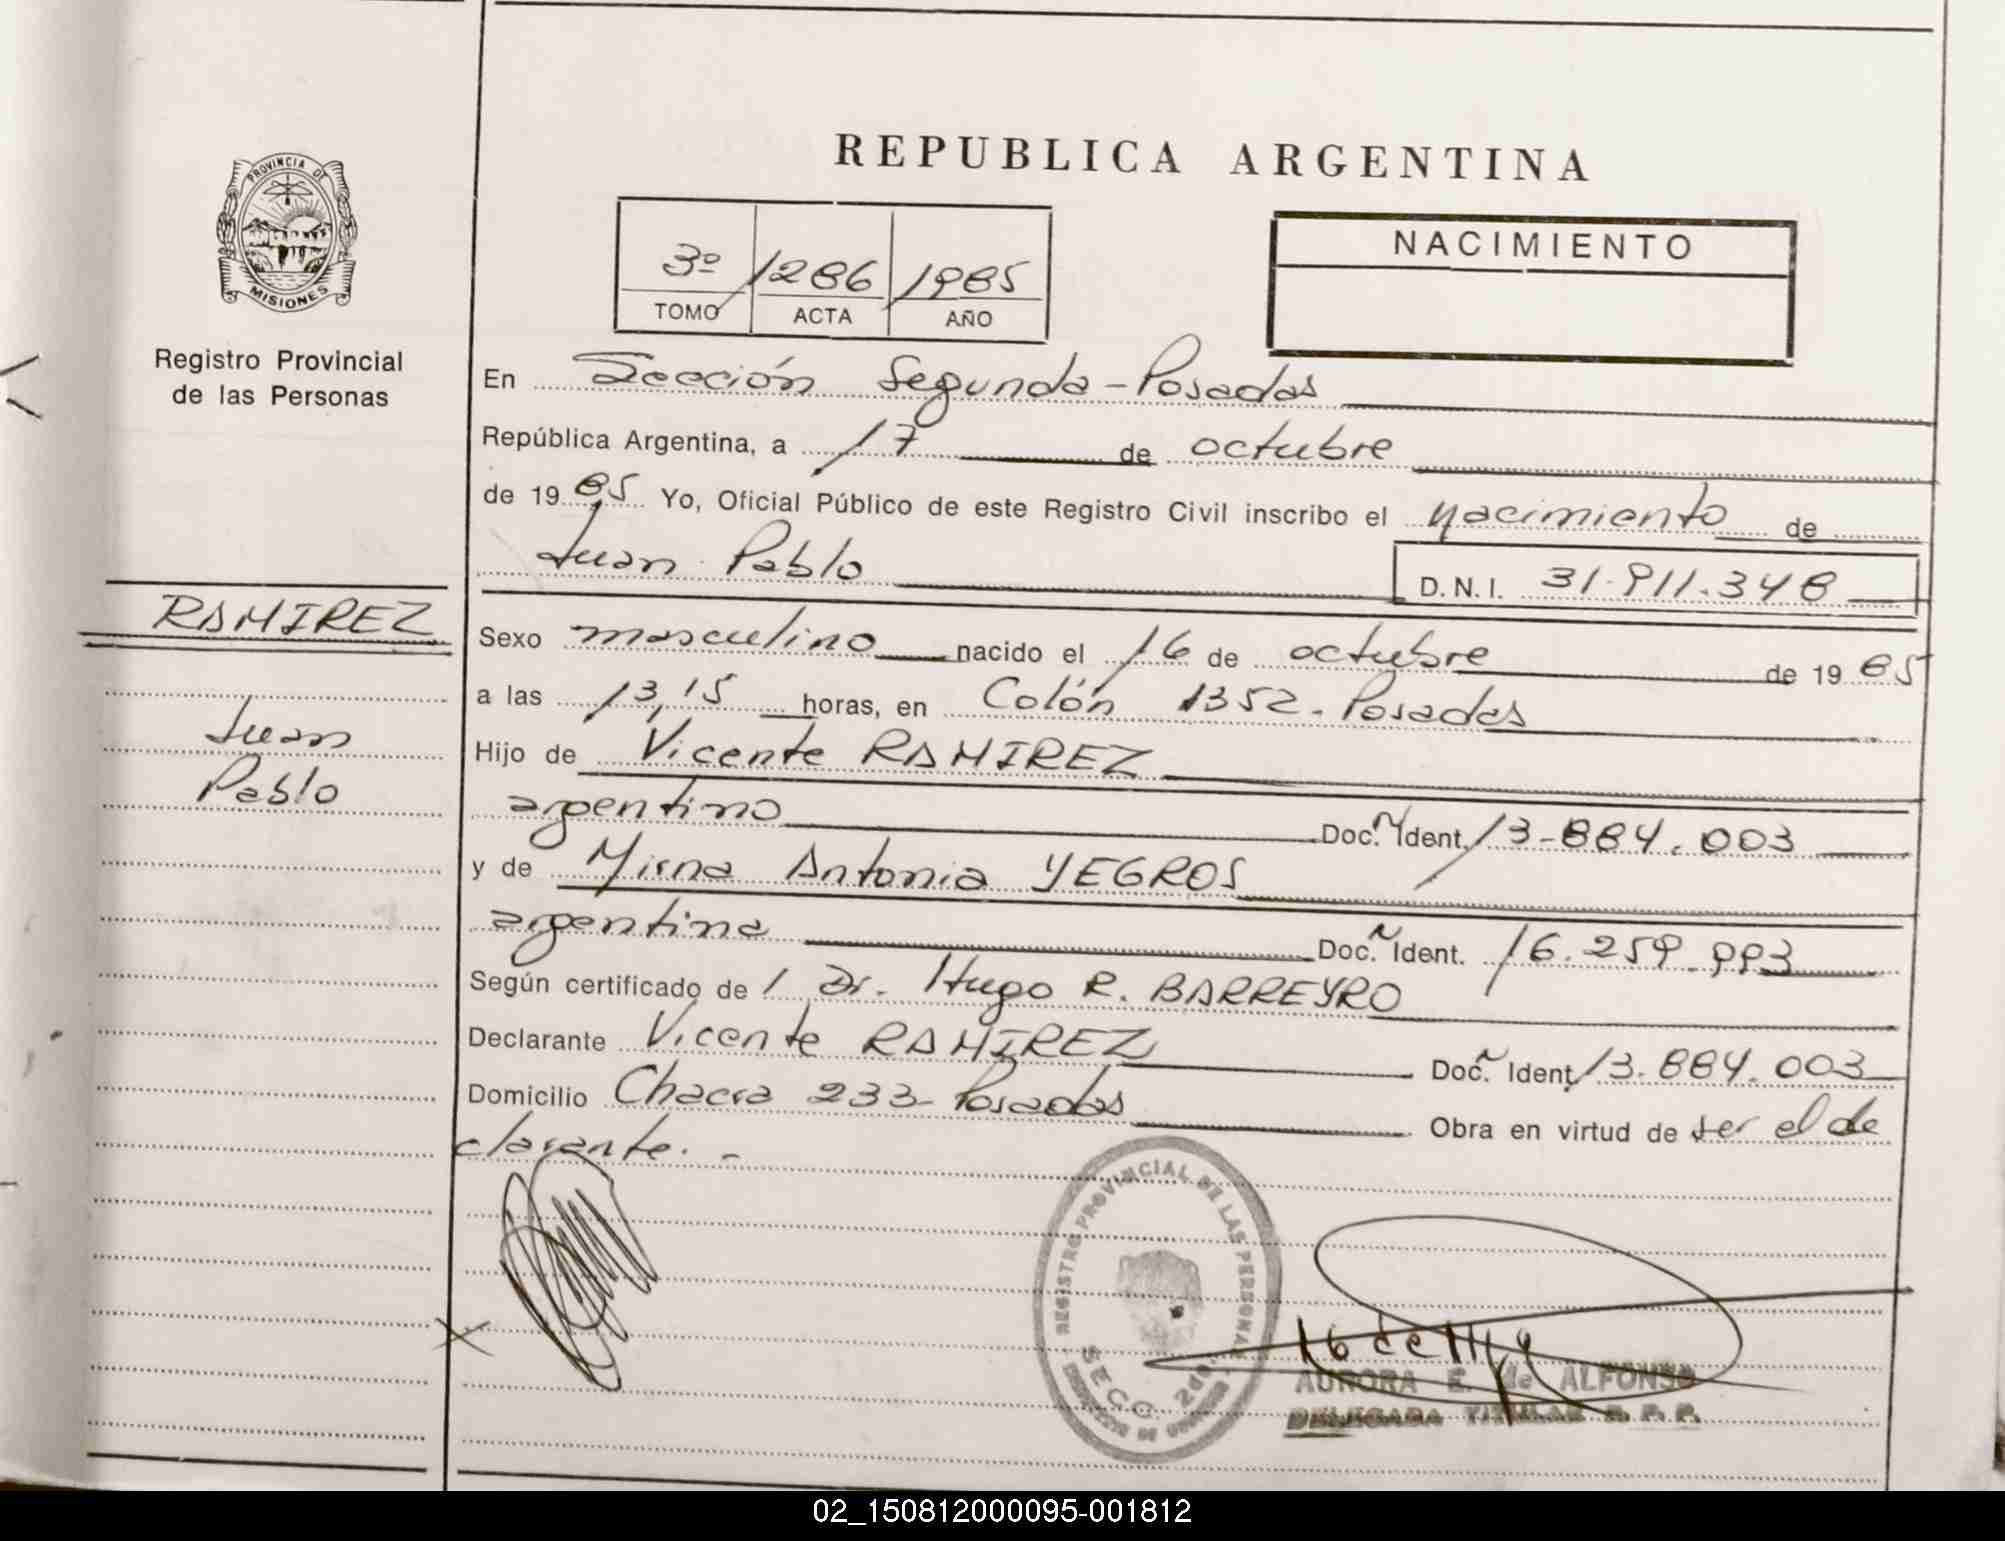 REPUBLICA ARGENTINA
PROVINCIA DE
MISIONES
Registro Provincial
de las Personas
3º 1286 1985
TOMO ACTA AÑO
NACIMIENTO
En Sección Segunda - Posadas
República Argentina, a 17 de octubre
de 19 85 Yo, Oficial Público de este Registro Civil inscribo el nacimiento de
Juan Pablo
D. N. I. 31.911.348
RAMIREZ
Juan
Pablo
Sexo masculino nacido el 16 de octubre de 19 85
a las 13,15 horas, en Colón 1352 - Posadas
Hijo de Vicente RAMIREZ
argentino Doc. Ident. 13-884.003
y de Mirna Antonia YEGROS
argentina Doc. Ident. 16.259.993
Según certificado de / Dr. Hugo R. BARREYRO
Declarante Vicente RAMIREZ Doc. Ident. 13.884.003
Domicilio Chacra 233 - Posadas Obra en virtud de ser el de
clarante. -
REGISTRO PROVINCIAL DE LAS PERSONAS
SECC. 2da.
AURORA E. de ALFONSO
DELEGADA TITULAR R. P. P.
02_150812000095-001812